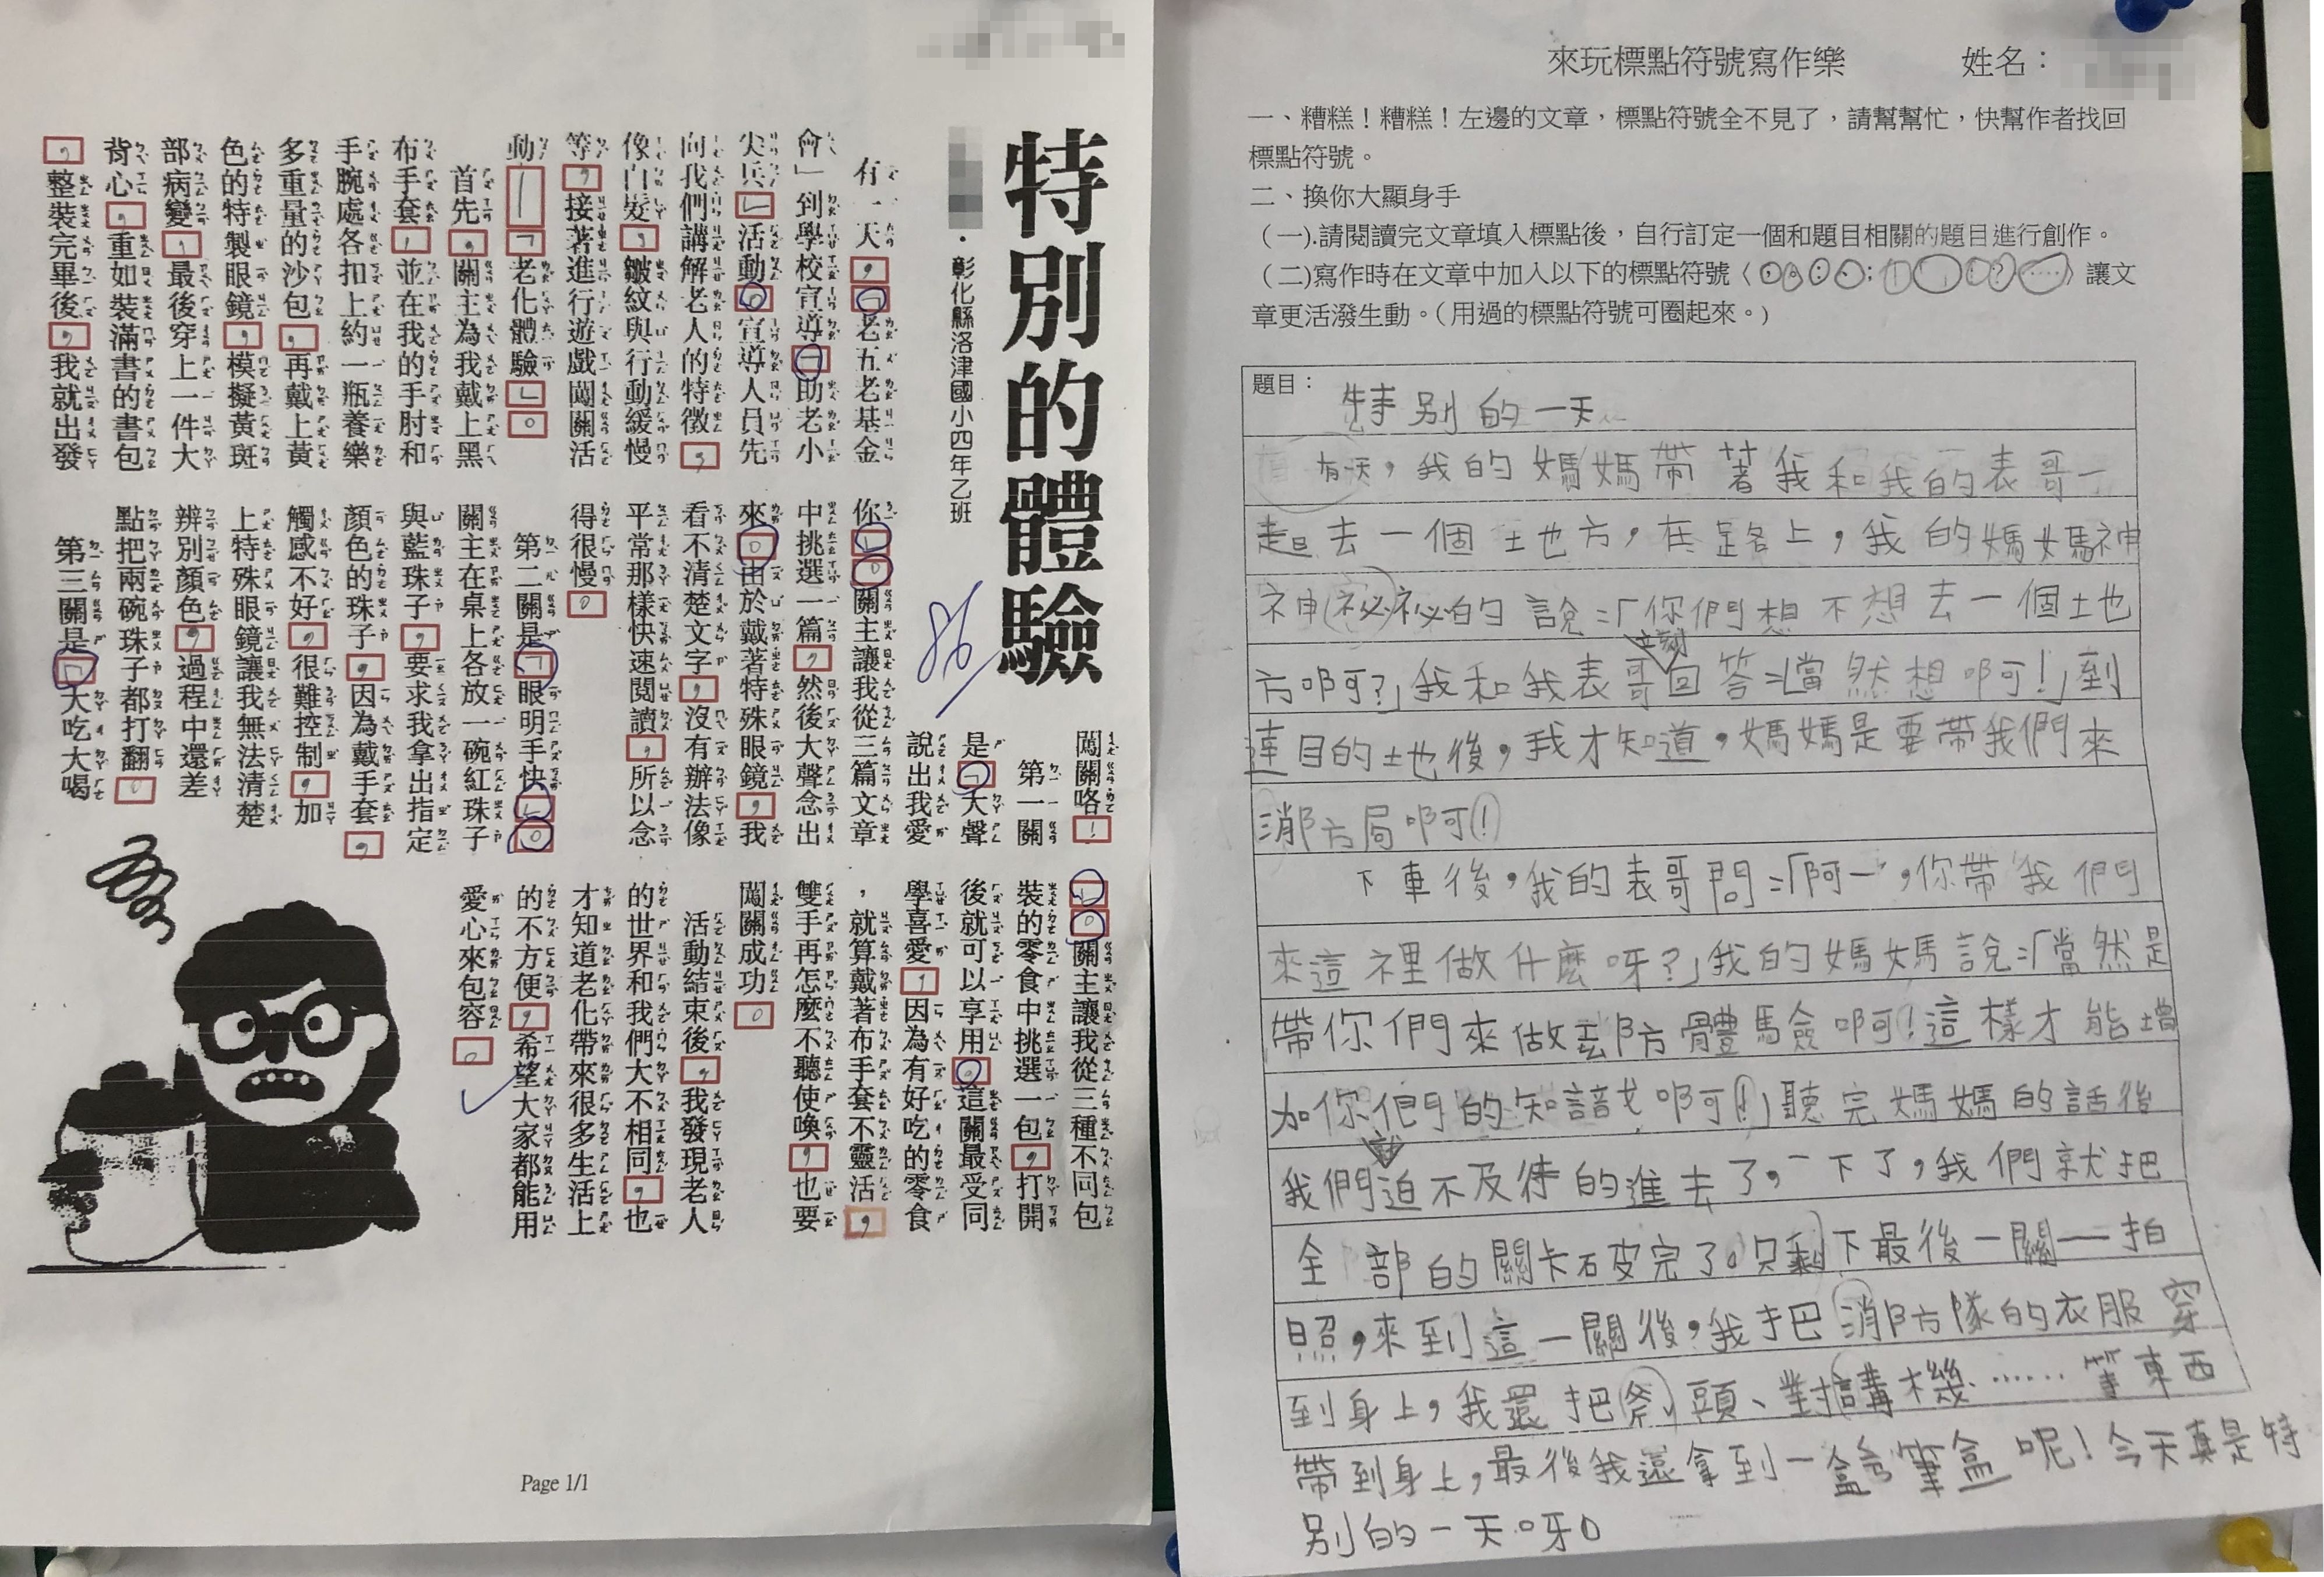 特別的體驗
・彰化縣洛津國小四年乙班
有一天，「老五老基金
會」到學校宣導「助老小
尖兵」活動。宣導人員先
向我們講解老人的特徵，
像白髮，皺紋與行動緩慢
等，接著進行遊戲闖關活
動—「老化體驗」。
首先，關主為我戴上黑
布手套，並在我的手肘和
手腕處各扣上約一瓶養樂
多重量的沙包，再戴上黃
色的特製眼鏡，模擬黃斑
部病變，最後穿上一件大
背心，重如裝滿書的書包
，整裝完畢後，我就出發
闖關咯！
第一關
是「大聲
說出我愛
你」。關主讓我從三篇文章
中挑選一篇，然後大聲念出
來。由於戴著特殊眼鏡，我
看不清楚文字，沒有辦法像
平常那樣快速閱讀，所以念
得很慢。
第二關是「眼明手快」。
關主在桌上各放一碗紅珠子
與藍珠子，要求我拿出指定
顏色的珠子，因為戴手套，
觸感不好，很難控制，加
上特殊眼鏡讓我無法清楚
辨別顏色，過程中還差
點把兩碗珠子都打翻。
第三關是「大吃大喝
」。關主讓我從三種不同包
裝的零食中挑選一包，打開
後就可以享用。這關最受同
學喜愛，因為有好吃的零食
，就算戴著布手套不靈活，
雙手再怎麼不聽使喚，也要
闖關成功。
活動結束後，我發現老人
的世界和我們大不相同，也
才知道老化帶來很多生活上
的不方便，希望大家都能用
愛心來包容。
86
Page 1/1
來玩標點符號寫作樂 姓名：
一、糟糕！糟糕！左邊的文章，標點符號全不見了，請幫幫忙，快幫作者找回
標點符號。
二、換你大顯身手
（一）.請閱讀完文章填入標點後，自行訂定一個和題目相關的題目進行創作。
（二）寫作時在文章中加入以下的標點符號〈 〉讓文
章更活潑生動。（用過的標點符號可圈起來。）
題目：特別的一天
有天，我的媽媽帶著我和我的表哥一
起去一個地方，在路上，我的媽媽神
神祕祕的說：「你們想不想去一個地
方啊？」我和我表哥立刻回答：「當然想啊！」到
達目的地後，我才知道，媽媽是要帶我們來
消防局啊！
下車後，我的表哥問：「阿一，你帶我們
來這裡做什麼呀？」我的媽媽說：「當然是
帶你們來做消防體驗啊！這樣才能增
加你們的知識啊！」聽完媽媽的話後
我們就迫不及待的進去了，一下了，我們就把
全部的關卡破完了。只剩下最後一關—拍
照，來到這一關後，我把消防隊的衣服穿
到身上，我還把斧頭、對講機……等東西
帶到身上，最後我還拿到一盒鉛筆盒呢！今天真是特
別的一天呀。